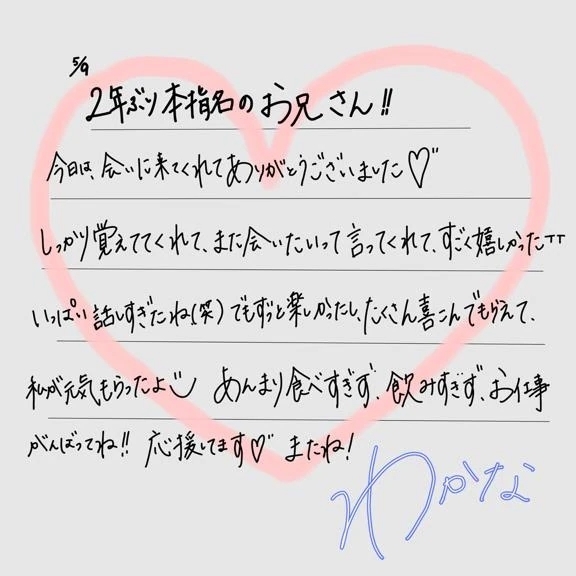 5/9
2年ぶり本指名のお兄さん!!
今日は、会いに来てくれてありがとうございました♡"
しっかり覚えててくれて、また会いたいって言ってくれて、すごく嬉しかったTT
いっぱい話しすぎたね(笑)でもずっと楽しかったし、たくさん喜こんでもらえて、
私が元気もらったよ あんまり食べすぎず、飲みすぎず、お仕事
がんばってね!! 応援してます♡" またね!
わかな